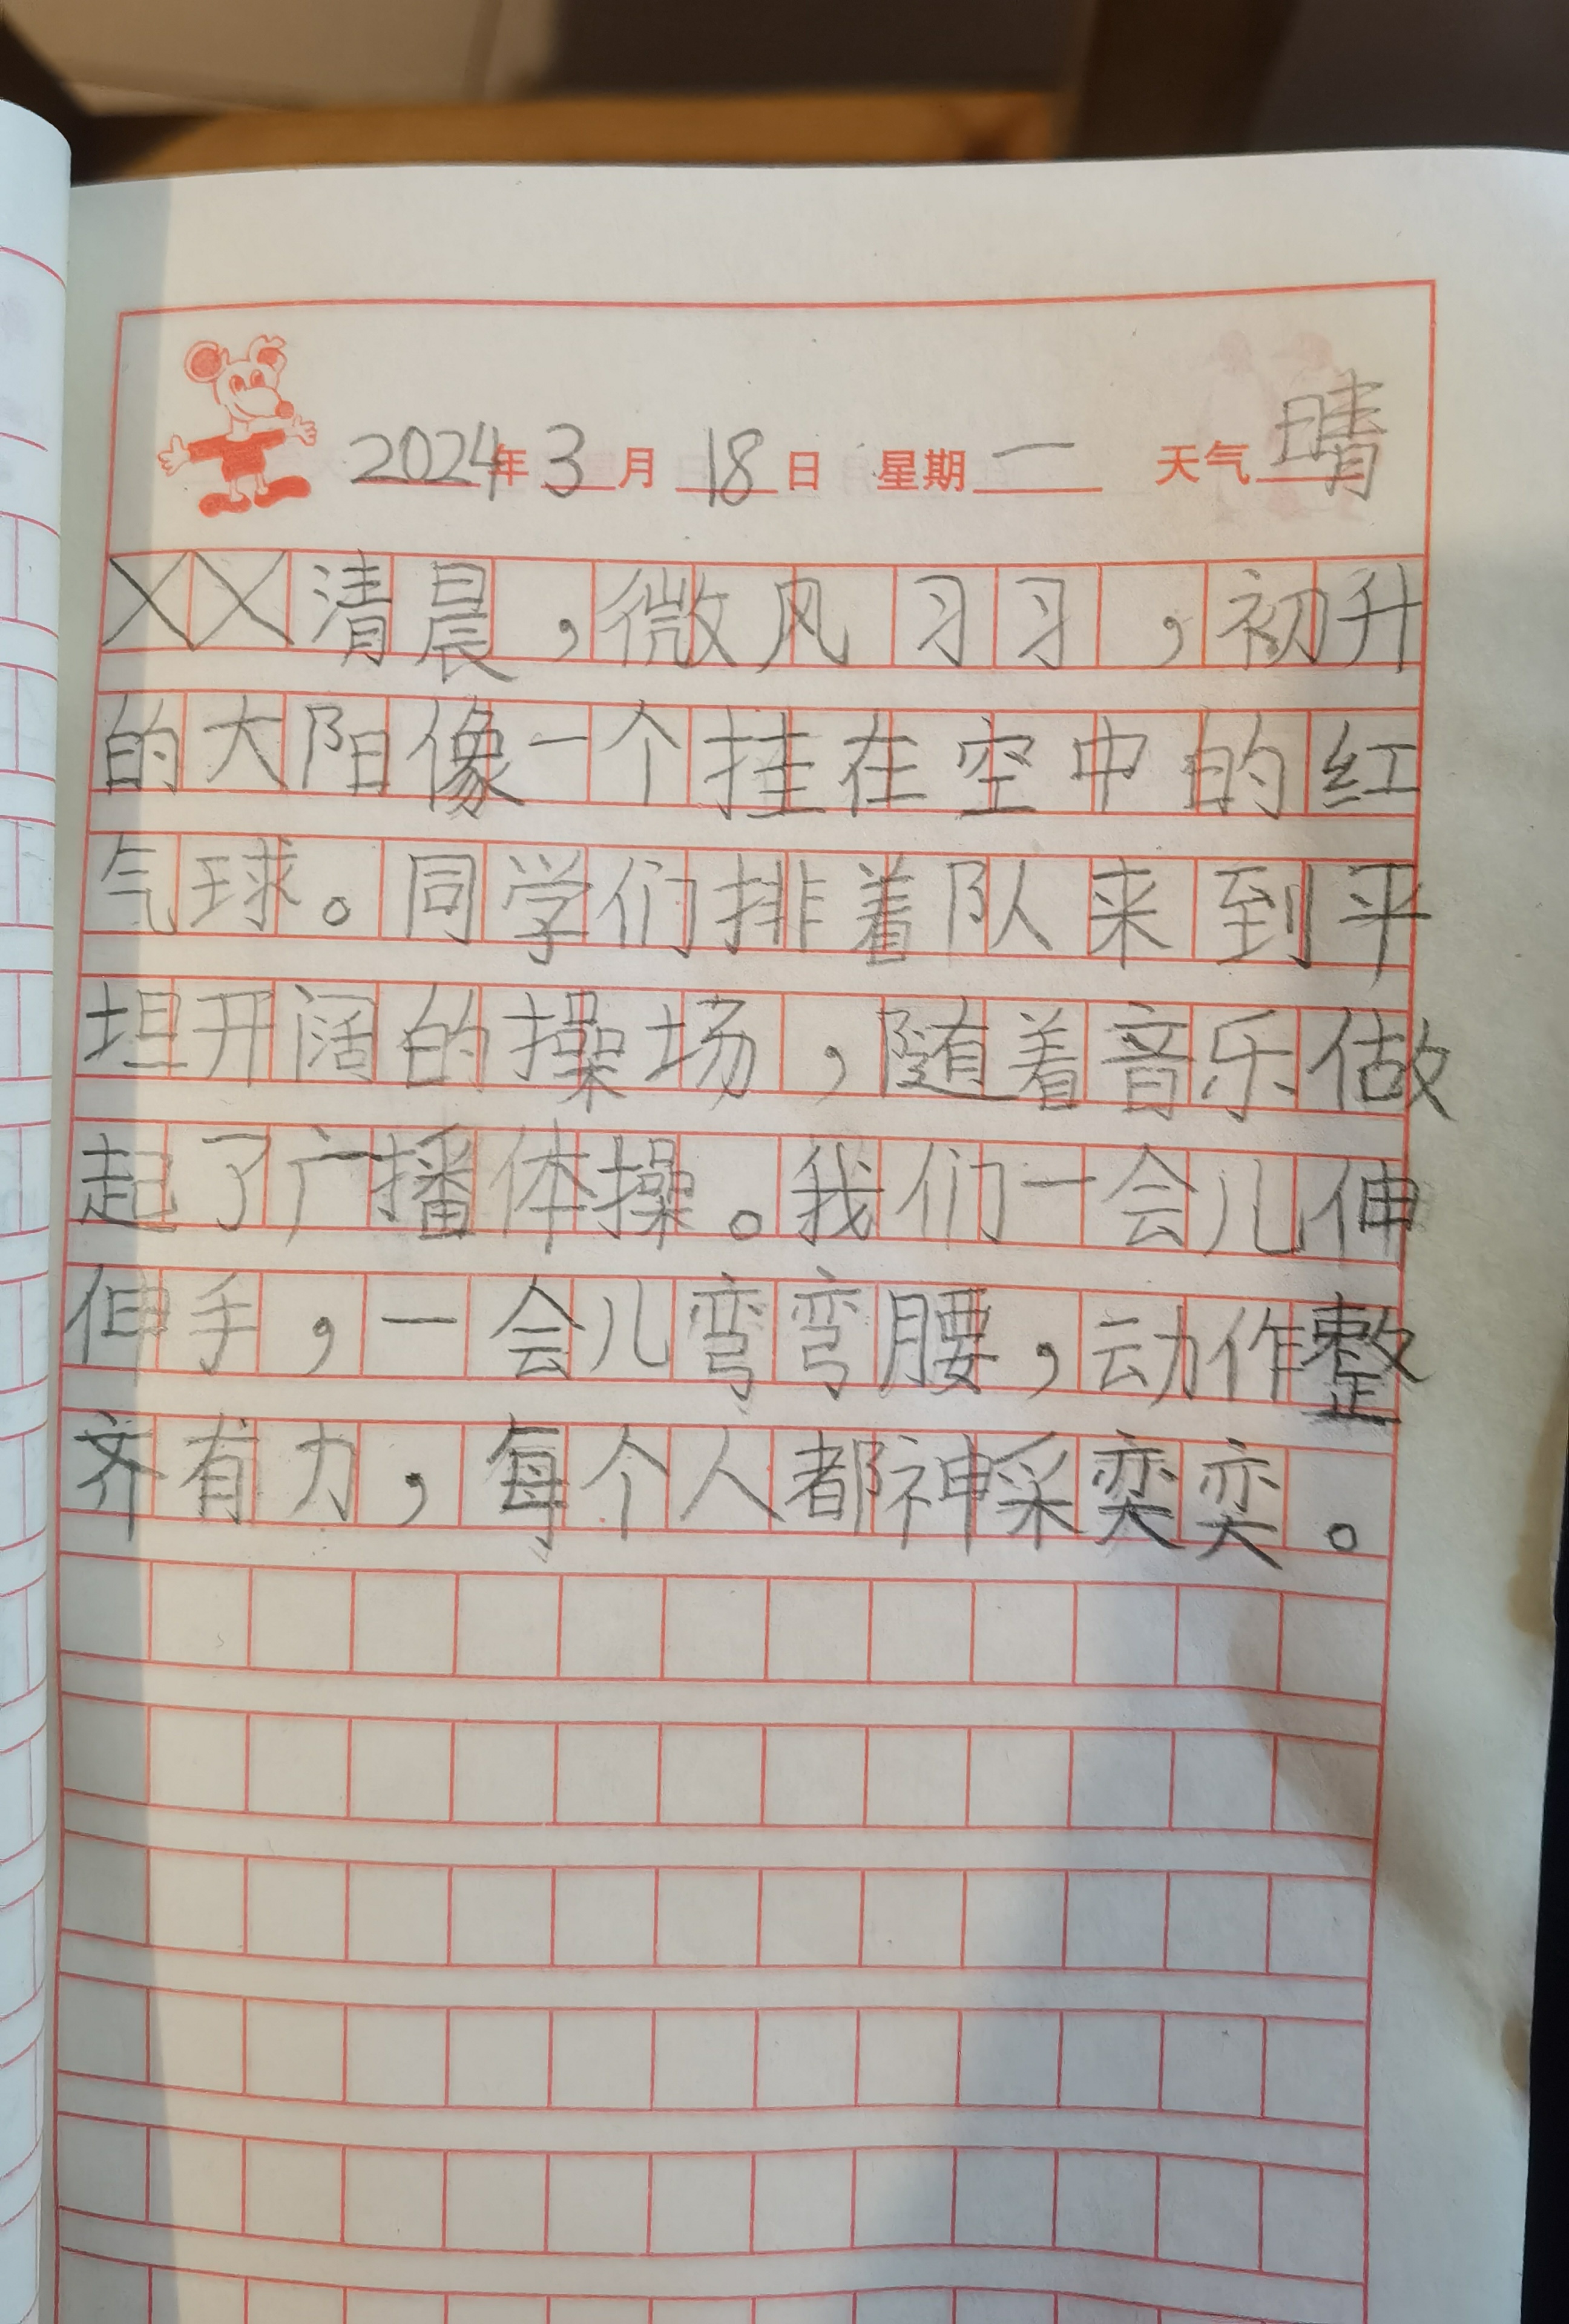 2024年3月18日 星期一 天气晴
清晨，微风习习，初升
的大阳像一个挂在空中的红
气球。同学们排着队来到平
坦开阔的操场，随着音乐做
起了广播体操。我们一会儿伸
伸手，一会儿弯弯腰，动作整
齐有力，每个人都神采奕奕。